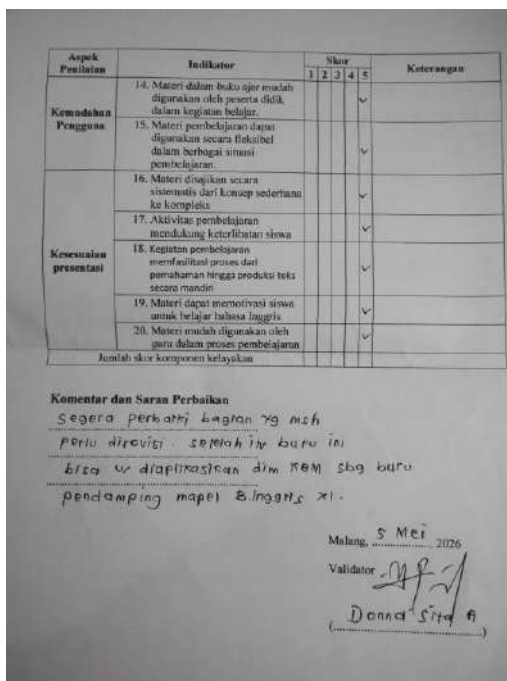 Aspek Penilaian
Indikator
Skor
Keterangan
1 2 3 4 5
Kemudahan Pengguna
14. Materi dalam buku ajar mudah
digunakan oleh peserta didik
dalam kegiatan belajar.
✓
15. Materi pembelajaran dapat
digunakan secara fleksibel
dalam berbagai situasi
pembelajaran.
✓
Kesesuaian presentasi
16. Materi disajikan secara
sistematis dari konsep sederhana
ke kompleks
✓
17. Aktivitas pembelajaran
mendukung keterlibatan siswa
✓
18. Kegiatan pembelajaran
memfasilitasi proses dari
pemahaman hingga produksi teks
secara mandiri
✓
19. Materi dapat memotivasi siswa
untuk belajar bahasa Inggris
✓
20. Materi mudah digunakan oleh
guru dalam proses pembelajaran
✓
Jumlah skor komponen kelayakan
Komentar dan Saran Perbaikan
Segera perbaiki bagian yg msh
perlu direvisi. setelah itu buku ini
bisa u/ diaplikasikan dlm KBM sbg buku
pendamping mapel B.Inggris XI.
Malang, 5 Mei 2026
Validator
Donna Sita A
(....................)